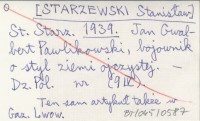 [STARZEWSKI Stanisław]
St. Starz. 1939. Jan Gwal-
bert Pawlikowski, bojownik
o styl ziemi ojczystej. -
Dz. Pol. nr
Ten sam artykuł także w
Gaz. Lwow.